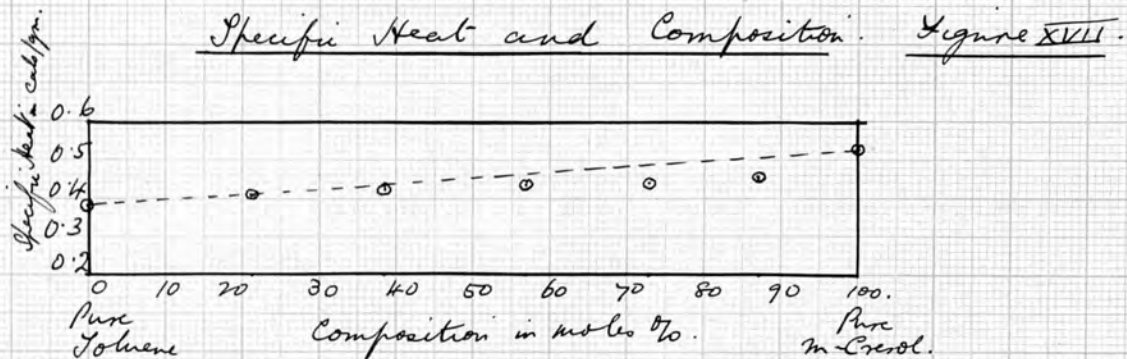 Specific Heat and Composition. Figure XVII.
Specific Heat - cals/gm.
0.6
0.5
0.4
0.3
0.2
0 10 20 30 40 50 60 70 80 90 100.
Pure Toluene
Composition in moles %.
Pure m-Cresol.